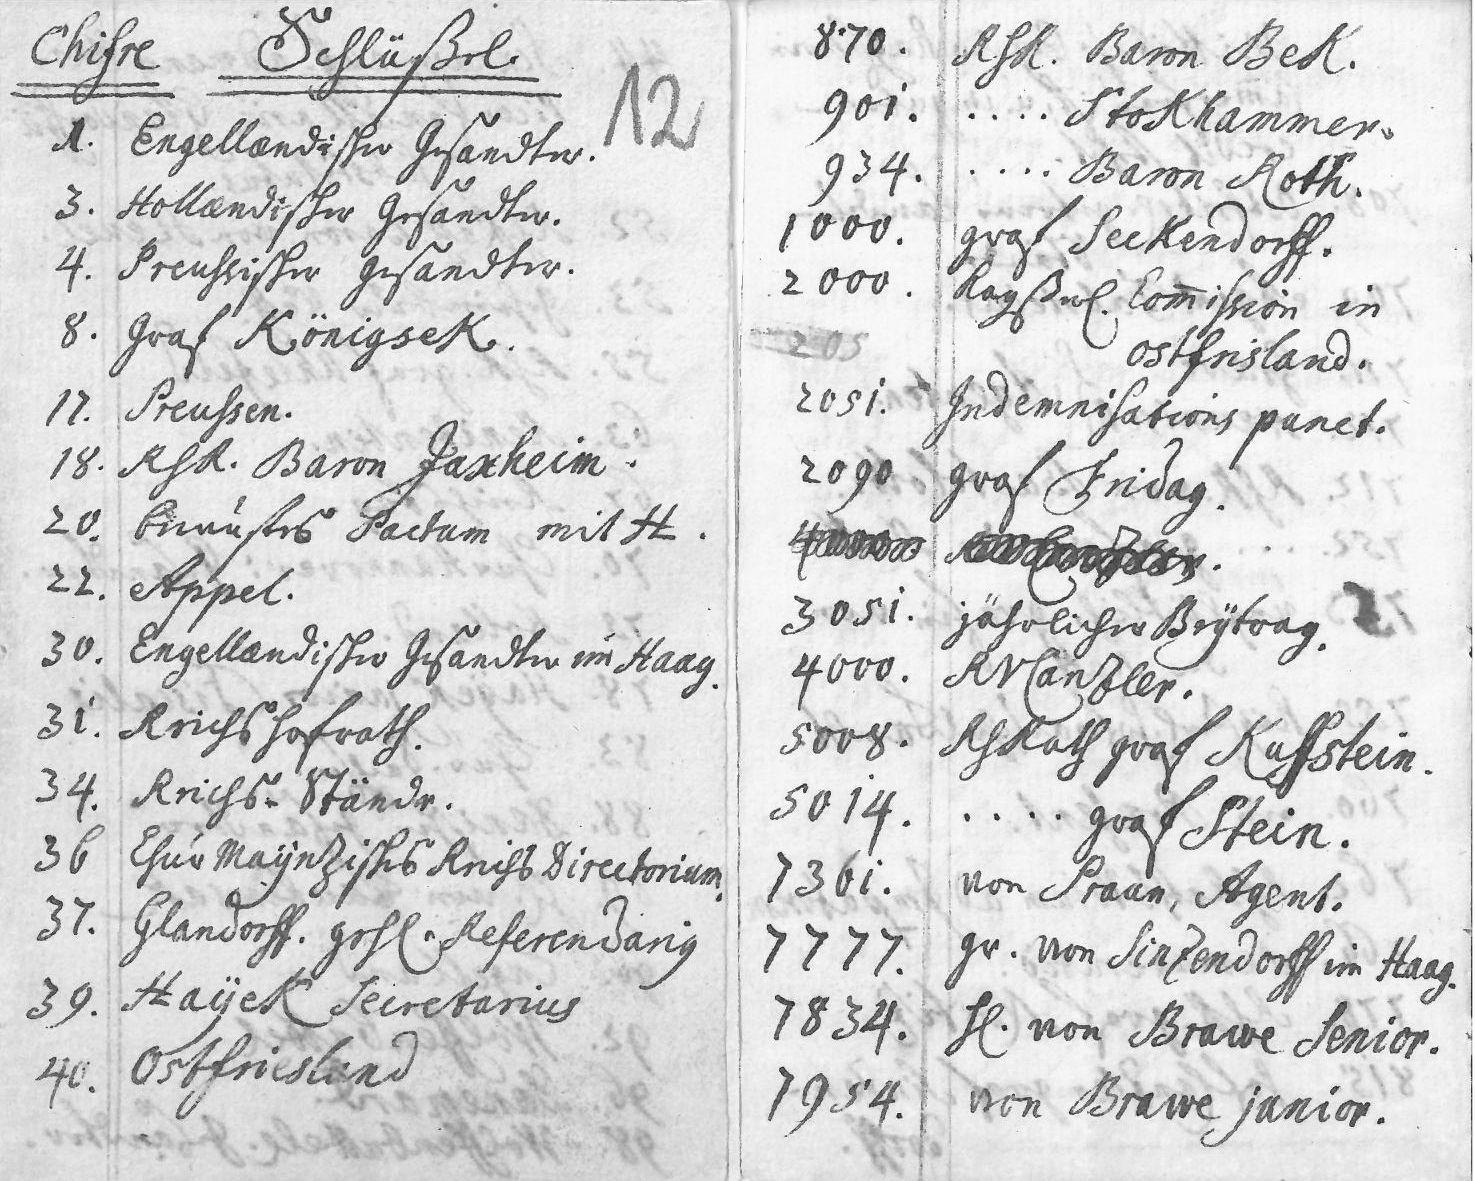 Chifre Schlüßel.
12
1. Engellændischer Gesandter.
3. Hollændischer Gesandter.
4. Preussischer Gesandter.
8. Graf Königsek.
17. Preussen.
18. RHR. Baron Jaxheim.
20. bewustes Pactum mit H.
22. Appel.
30. Engellændischer Gesandter im Haag.
31. Reichshofrath.
34. Reichs-Stände.
36 Chur Maÿnzisches Reichs Directorium.
37. Glandorff. gehl. Referendarig
39. Haÿek Secretarius
40. Ostfriesland
870. RHR. Baron Bek.
901. .... Stokhammer.
934. .... Baron Roth.
1000. graf Seckendorff.
2000. Commission in
205 ostfrisland.
2051. Indemnisations punct.
2090 graf Fridag.
3051. jährlicher Beÿtrag.
4000. RVCanzler.
5008. RHRath graf Kuffstein.
5014. .... graf Stein.
7361. von Praun, Agent.
7777. gr. von Sinzendorff im Haag.
7834. H. von Brawe Senior.
7954. von Brawe junior.